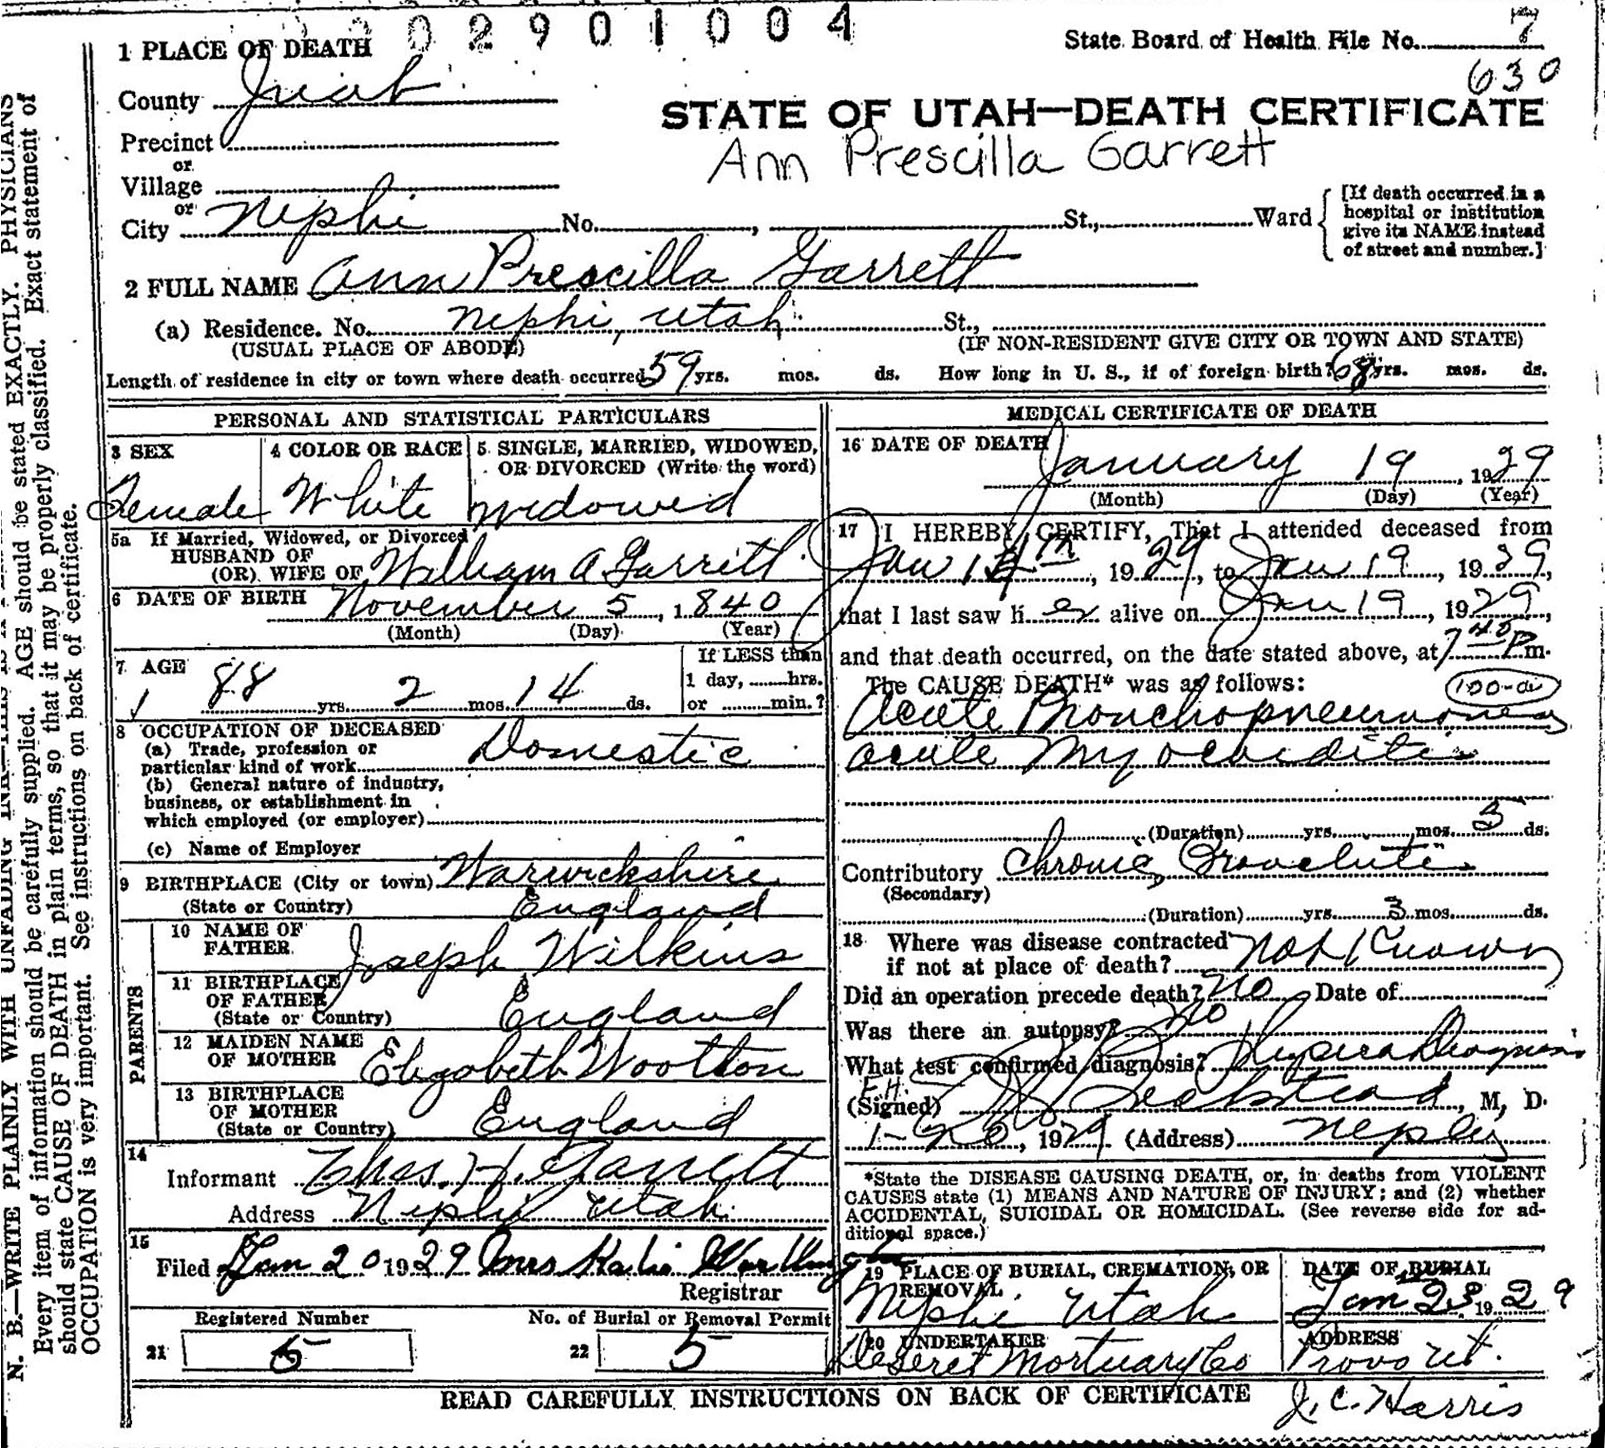 02901004
1 PLACE OF DEATH
State Board of Health File No. 7
630
County Juab
STATE OF UTAH—DEATH CERTIFICATE
Ann Prescilla Garrett
Precinct
or
Village
or
City Nephi No. , St., Ward
[If death occurred in a
hospital or institution
give its NAME instead
of street and number.]
2 FULL NAME Ann Prescilla Garrett
(a) Residence. No. Nephi, Utah St.,
(USUAL PLACE OF ABODE) (IF NON-RESIDENT GIVE CITY OR TOWN AND STATE)
Length of residence in city or town where death occurred 59 yrs. mos. ds. How long in U. S., if of foreign birth? 68 yrs. mos. ds.
PERSONAL AND STATISTICAL PARTICULARS
3 SEX
Female
4 COLOR OR RACE
White
5 SINGLE, MARRIED, WIDOWED,
OR DIVORCED (Write the word)
Widowed
5a If Married, Widowed, or Divorced
HUSBAND OF
(OR) WIFE OF William A Garrett
6 DATE OF BIRTH November 5, 1840
(Month) (Day) (Year)
7 AGE
88 yrs. 2 mos. 14 ds.
If LESS than
1 day, hrs.
or min.?
8 OCCUPATION OF DECEASED
(a) Trade, profession or
particular kind of work Domestic
(b) General nature of industry,
business, or establishment in
which employed (or employer)
(c) Name of Employer
9 BIRTHPLACE (City or town) Warwickshire
(State or Country) England
PARENTS
10 NAME OF
FATHER Joseph Wilkins
11 BIRTHPLACE
OF FATHER
(State or Country) England
12 MAIDEN NAME
OF MOTHER Elizabeth Wootton
13 BIRTHPLACE
OF MOTHER
(State or Country) England
14
Informant Chas. H. Garrett
Address Nephi Utah
15
Filed Jan 20 1929 Mrs Katie
Registrar
Registered Number
21 5
No. of Burial or Removal Permit
22 5
MEDICAL CERTIFICATE OF DEATH
16 DATE OF DEATH
January 19, 1929
(Month) (Day) (Year)
17 I HEREBY CERTIFY, That I attended deceased from
Jan th, 1929, to Jan 19, 1929,
that I last saw h er alive on Jan 19, 1929,
and that death occurred, on the date stated above, at 7 40 P m.
The CAUSE DEATH* was as follows:
100-a
Acute Bronchopneumonia
acute Myocarditis
(Duration) yrs. mos. 5 ds.
Contributory Chronic
(Secondary)
(Duration) yrs. 3 mos. ds.
18 Where was disease contracted
if not at place of death? Not Known
Did an operation precede death? No Date of
Was there an autopsy? No
What test confirmed diagnosis?
(Signed) Beckstead, M. D.
1-20, 1929 (Address) Nephi
*State the DISEASE CAUSING DEATH, or, in deaths from VIOLENT
CAUSES state (1) MEANS AND NATURE OF INJURY; and (2) whether
ACCIDENTAL, SUICIDAL OR HOMICIDAL. (See reverse side for ad-
ditional space.)
19 PLACE OF BURIAL, CREMATION, OR
REMOVAL
Nephi Utah
DATE OF BURIAL
Jan 23 1929
20 UNDERTAKER
Deseret Mortuary Co
ADDRESS
Provo Ut.
READ CAREFULLY INSTRUCTIONS ON BACK OF CERTIFICATE
J. C. Harris
N. B.—WRITE PLAINLY WITH UNFADING INK
Every item of information should be carefully supplied. AGE should be stated EXACTLY. PHYSICIANS
should state CAUSE OF DEATH in plain terms, so that it may be properly classified. Exact statement of
OCCUPATION is very important. See instructions on back of certificate.